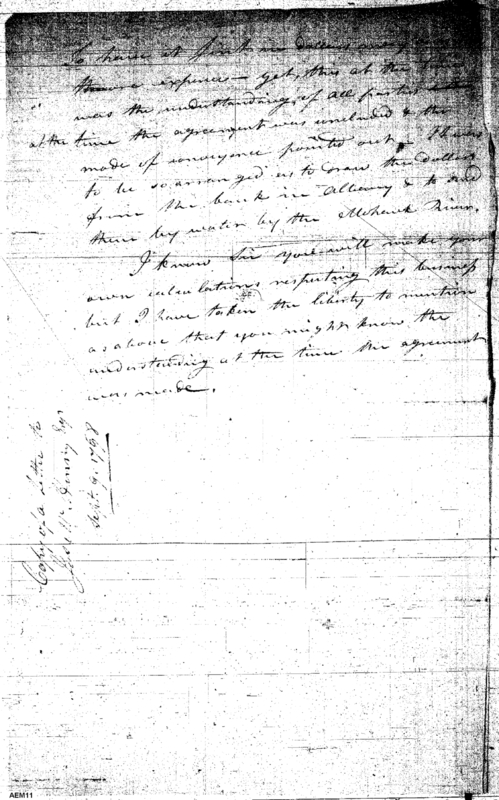 To have it
there expence — yet, this at the
was the understanding of all parties
at the time the agreement was concluded & the
mode of conveyance pointed out, It was
to be so arranged as to draw the dollars
from the bank in Albany & to send
them by water by the Mohawk River.
I know Sir you will make your
own calculations respecting this business
but I have taken the liberty to mention
as above that you might know the
understanding at the time the agreement
was made.
Copy of a letter to
Henry Esqr
Sept. 9. 1798
AEM11